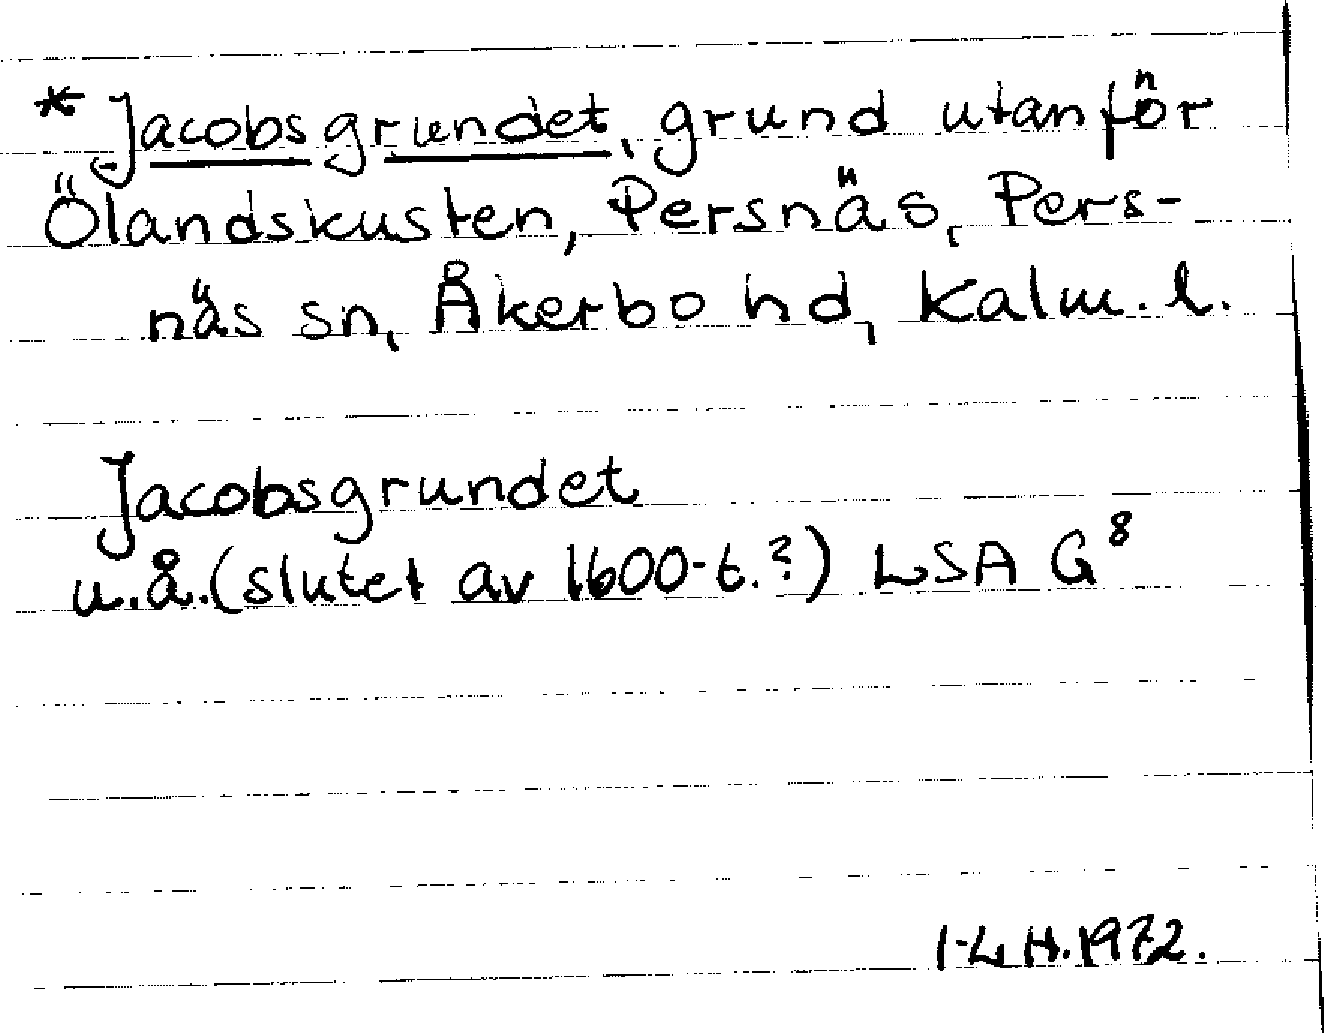 * Jacobsgrundet, grund utanför
Ölandskusten, Persnäs, Pers-
näs sn, Åkerbo hd, Kalm. l.
Jacobsgrundet
u.å. (slutet av 1600-t.?) LSA G⁸
I-L H. 1972.